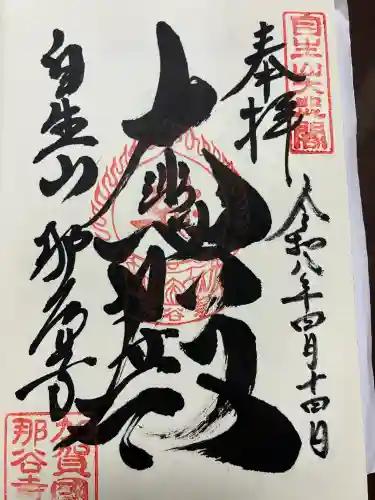 奉拝
自生山大悲閣
令和八年四月十四日
大悲殿
自生山
那谷寺
加賀國
那谷寺